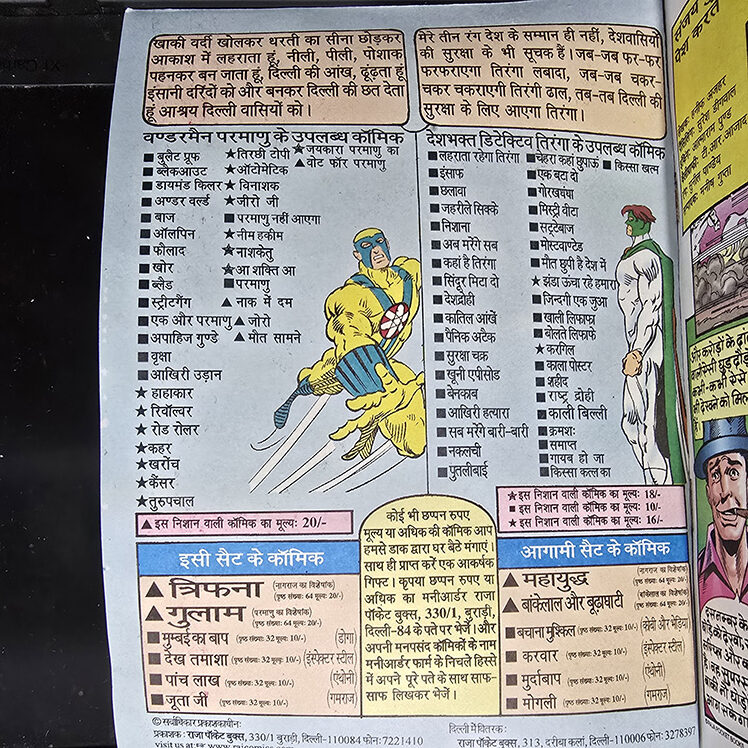 खाकी वर्दी खोलकर धरती का सीना छोड़कर
आकाश में लहराता हूं, नीली, पीली, पोशाक
पहनकर बन जाता हूं, दिल्ली की आंख, ढूंढ़ता हूं
इंसानी दरिंदों को और बनकर दिल्ली की छत देता
हूं आश्रय दिल्ली वासियों को।
मेरे तीन रंग देश के सम्मान ही नहीं, देशवासियों
की सुरक्षा के भी सूचक हैं। जब-जब फर-फर
फरफराएगा तिरंगा लबादा, जब-जब चकर-
चकर चकराएगी तिरंगी ढाल, तब-तब दिल्ली की
सुरक्षा के लिए आएगा तिरंगा।
वण्डरमैन परमाणु के उपलब्ध कॉमिक
■ बुलैट प्रूफ
■ ब्लेकआउट
■ डायमंड किलर
■ अण्डर वर्ल्ड
■ बाज
■ ऑलपिन
■ फौलाद
■ खोर
■ ब्लैड
■ स्ट्रीटगैंग
■ एक और परमाणु
■ अपाहिज गुण्डे
■ वृक्षा
■ आखिरी उड़ान
★ हाहाकार
★ रिवॉल्वर
★ रोड रोलर
★ कहर
★ खरोंच
★ कैंसर
★ तुरुपचाल
★ तिरछी टोपी
★ ऑटोमेटिक
★ विनाशक
★ जीरो जी
■ परमाणु नहीं आएगा
★ नीम हकीम
★ नाशकेतु
★ आ शक्ति आ
■ परमाणु
▲ नाक में दम
▲ जोरो
▲ मौत सामने
★ जयकारा परमाणु का
▲ वोट फॉर परमाणु
▲ इस निशान वाली कॉमिक का मूल्य: 20/-
देशभक्त डिटेक्टिव तिरंगा के उपलब्ध कॉमिक
■ लहराता रहेगा तिरंगा
■ इंसाफ
■ छलावा
■ जहरीले सिक्के
■ निशाना
■ अब मरेंगे सब
■ कहां है तिरंगा
■ सिंदूर मिटा दो
■ देशद्रोही
■ कातिल आंखें
■ पैनिक अटैक
■ सुरक्षा चक्र
■ खूनी एपीसोड
■ बेनकाब
■ आखिरी हत्यारा
■ सब मरेंगे बारी-बारी
■ नकलची
■ पुतलीबाई
■ चेहरा कहां छुपाऊं
■ एक बटा दो
■ गोरखधंधा
■ मिस्ट्री वीटा
■ सट्टेबाज
■ मोस्टवाण्टेड
■ मौत छुपी है देश में
★ झंडा ऊंचा रहे हमारा
■ जिन्दगी एक जुआ
■ खाली लिफाफा
■ बोलते लिफाफे
★ करगिल
■ काला पोस्टर
■ शहीद
■ राष्ट्र द्रोही
■ काली बिल्ली
■ क्रमशः
■ समाप्त
■ गायब हो जा
■ किस्सा कल का
■ किस्सा खत्म
★ इस निशान वाली कॉमिक का मूल्य: 18/-
■ इस निशान वाली कॉमिक का मूल्य: 10/-
★ इस निशान वाली कॉमिक का मूल्य: 16/-
इसी सैट के कॉमिक
▲ त्रिफना (नागराज का विशेषांक) (पृष्ठ संख्या: 64 मूल्य: 20/-)
▲ गुलाम (परमाणु का विशेषांक) (पृष्ठ संख्या: 64 मूल्य: 20/-)
■ मुम्बई का बाप (पृष्ठ संख्या: 32 मूल्य: 10/-) (डोगा)
■ देख तमाशा (पृष्ठ संख्या: 32 मूल्य: 10/-) (इंस्पेक्टर स्टील)
■ पांच लाख (पृष्ठ संख्या: 32 मूल्य: 10/-) (एंथोनी)
■ जूता जी (पृष्ठ संख्या: 32 मूल्य: 10/-) (गमराज)
कोई भी छप्पन रुपए
मूल्य या अधिक की कॉमिक आप
हमसे डाक द्वारा घर बैठे मंगाएं।
साथ ही प्राप्त करें एक आकर्षक
गिफ्ट। कृपया छप्पन रुपए या
अधिक का मनीआर्डर राजा
पॉकेट बुक्स, 330/1, बुराड़ी,
दिल्ली-84 के पते पर भेजें। और
अपनी मनपसंद कॉमिकों के नाम
मनीआर्डर फार्म के निचले हिस्से
में अपने पूरे पते के साथ साफ-
साफ लिखकर भेजें।
आगामी सैट के कॉमिक
▲ महायुद्ध (नागराज का विशेषांक) (पृष्ठ संख्या: 64 मूल्य: 20/-)
▲ बांकेलाल और बूढ़ाघाटी (बांकेलाल का विशेषांक) (पृष्ठ संख्या: 64 मूल्य: 20/-)
■ बचाना मुश्किल (पृष्ठ संख्या: 32 मूल्य: 10/-) (कोबी और भेड़िया)
■ करवार (पृष्ठ संख्या: 32 मूल्य: 10/-) (इंस्पेक्टर स्टील)
■ मुर्दाबाप (पृष्ठ संख्या: 32 मूल्य: 10/-) (एंथोनी)
■ मोगली (पृष्ठ संख्या: 32 मूल्य: 10/-) (गमराज)
© सर्वाधिकार प्रकाशकाधीन:
प्रकाशक: राजा पॉकेट बुक्स, 330/1 बुराड़ी, दिल्ली-110084 फोन: 7221410
दिल्ली में वितरक:
राजा पॉकेट बुक्स, 313, दरीबा कलां, दिल्ली-110006 फोन: 3278397
संजय
पेश करते